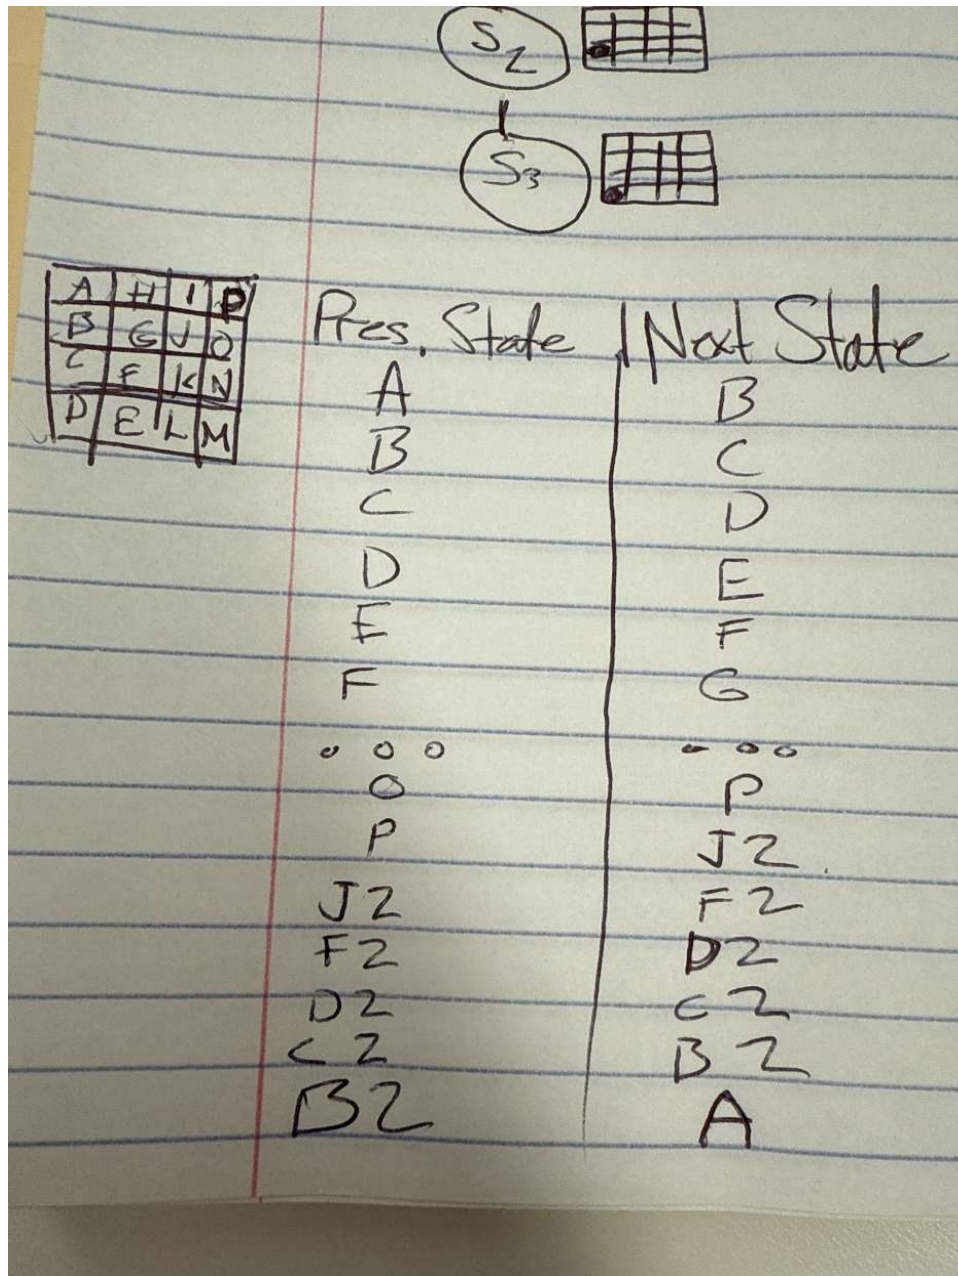 S2
S3
A H I P
B G J O
C F K N
D E L M
Pres. State Next State
A B
B C
C D
D E
E F
F G
o o o - o o
O P
P J2
J2 F2
F2 D2
D2 C2
C2 B2
B2 A